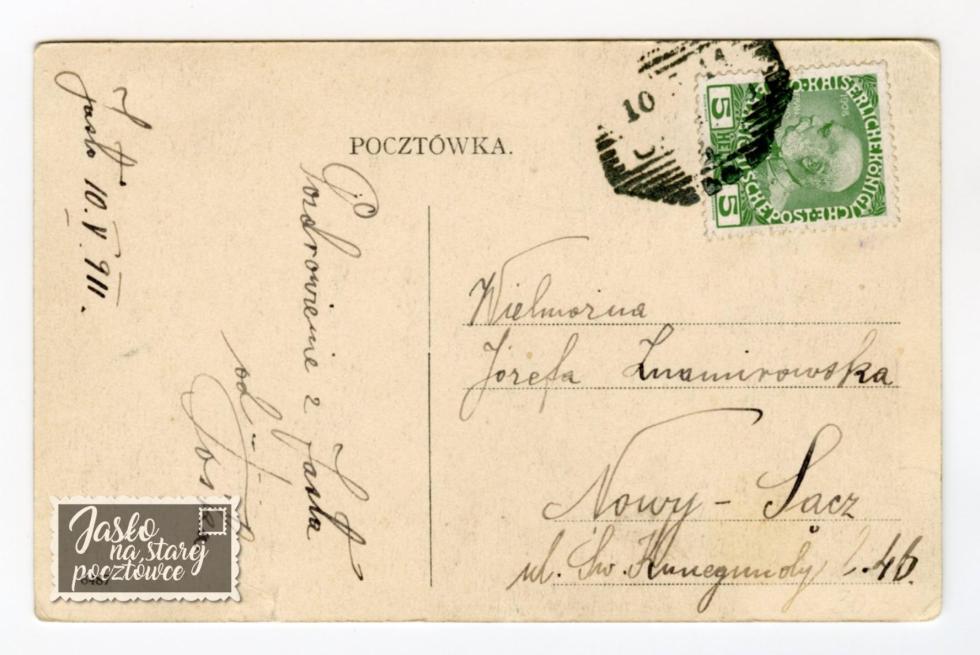 POCZTÓWKA.
Jasło 10.V.911.
Pozdrowienie z Jasła
od
Wielmożna
Józefa Znamirowska
Nowy-Sącz
ul. Św. Kunegundy l. 46.
10
KAISERLICHE KÖNIGLICHE
POST
5 5
Jasło
na starej
pocztówce